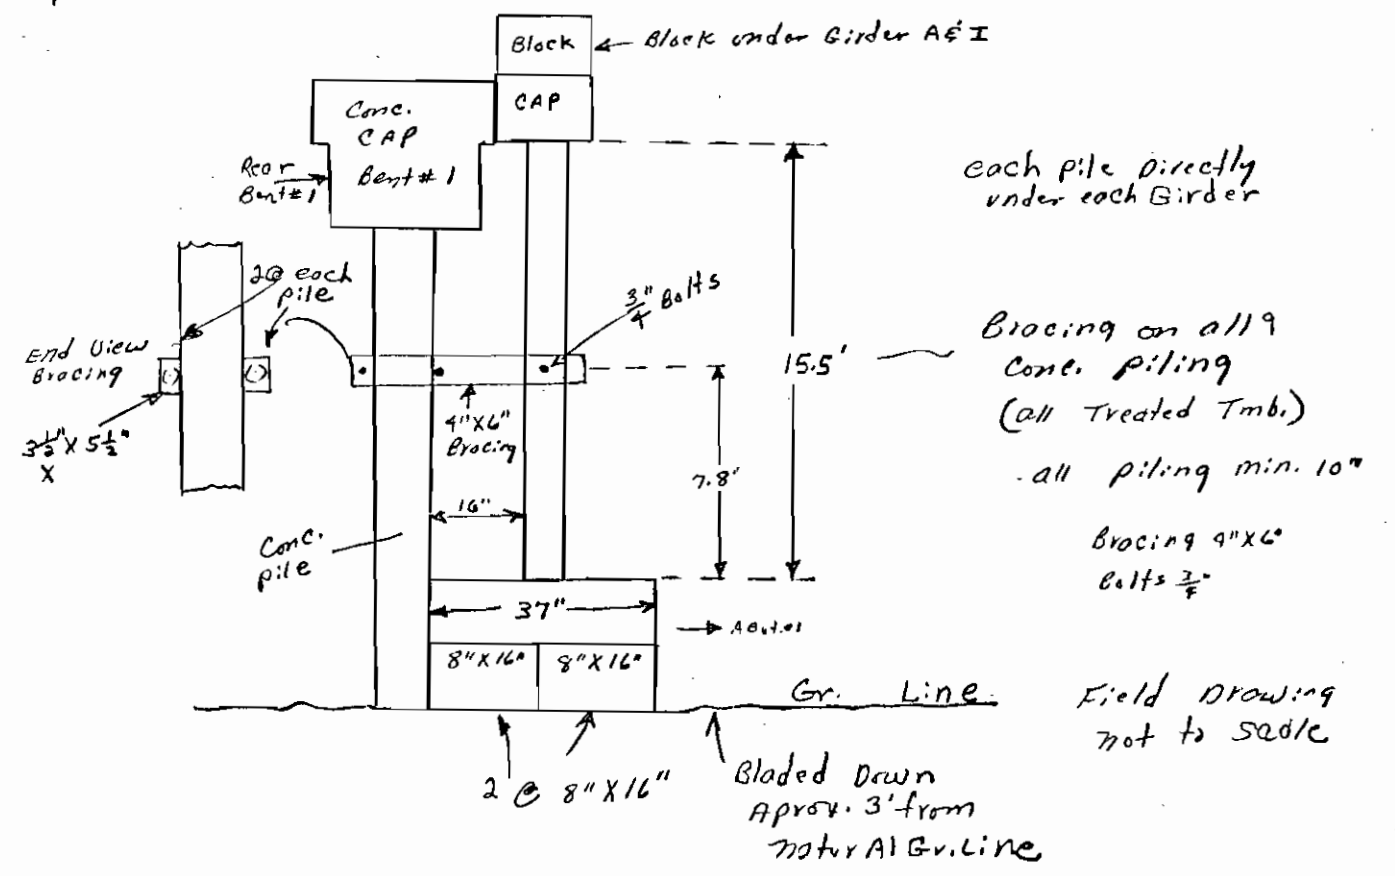 Block
Block under Girder A & I
CAP
Conc.
CAP
Bent # 1
Rear
Bent # 1
each pile Directly
under each Girder
2 @ each
pile
3/4" Bolts
End View
Bracing
3 1/2" X 5 1/2"
X
4" X 6"
Bracing
15.5'
Bracing on all 9
Conc. piling
(all Treated Tmb.)
7.8'
all piling min. 10"
16"
Conc.
pile
Bracing 4" X 6"
Bolts 3/4"
37"
8" X 16"
8" X 16"
Gr. Line
Field Drawing
not to Sadle
2 @ 8" X 16"
Bladed Down
Aprox. 3' from
naturAl Gr. Line